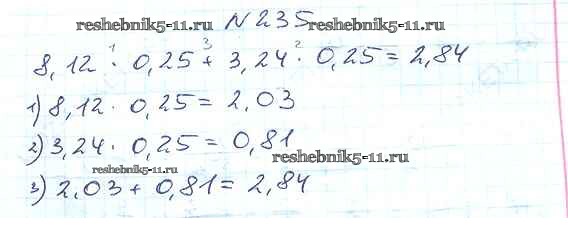 reshebnik5-11.ru N 235 reshebnik5-11.ru
1 3 2
8,12 · 0,25 + 3,24 · 0,25 = 2,84
1) 8,12 · 0,25 = 2,03
2) 3,24 · 0,25 = 0,81
reshebnik5-11.ru
reshebnik5-11.ru
3) 2,03 + 0,81 = 2,84
reshebnik5-11.ru